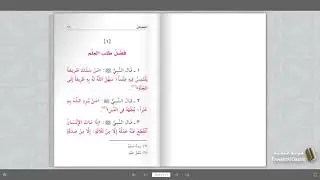 [١]
فَضْلُ طَلَبِ العِلْمِ
١ ـ قَالَ النَّبِيُّ ﷺ : «مَنْ سَلَكَ طَرِيقاً
يَلْتَمِسُ فِيهِ عِلْماً، سَهَّلَ اللَّهُ لَهُ بِهِ طَرِيقاً إِلَى
الجَنَّةِ»
٢ ـ قَالَ النَّبِيُّ ﷺ : «مَنْ يُرِدِ اللَّهُ بِهِ
خَيْراً، يُفَقِّهْهُ فِي الدِّينِ»
٣ ـ قَالَ النَّبِيُّ ﷺ : «إِذَا مَاتَ الإِنْسَانُ
انْقَطَعَ عَنْهُ عَمَلُهُ إِلَّا مِنْ ثَلَاثَةٍ: إِلَّا مِنْ صَدَقَةٍ